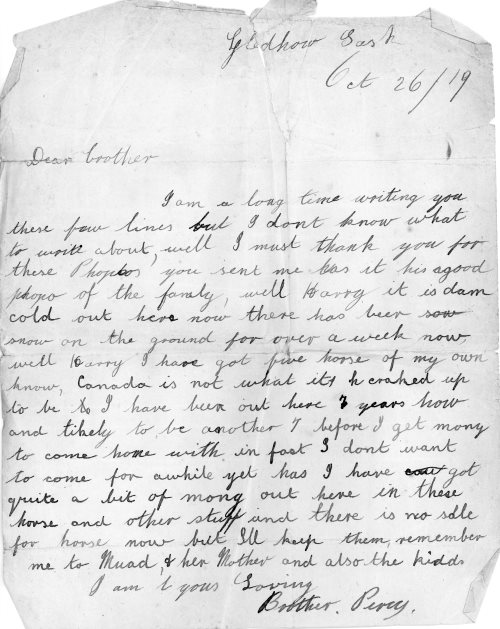 Gledhow Sask
Oct 26/19
Dear brother
I am a long time writing you
these few lines but I dont know what
to write about, well I must thank you for
these Photos you sent me has it his a good
photo of the family, well Harry it is dam
cold out here now there has been sow
snow on the ground for over a week now,
well Harry I have got five horse of my own
know, Canada is not what its craked up
to be So I have been out here 7 years now
and likely to be another 7 before I get mony
to come home with, in fact I dont want
to come for awhile yet has I have got
quite a bit of mony out here in these
horse and other stuff and there is no sale
for horse now but I'll keep them, remember
me to Muad, & her Mother and also the kidds
I am yous Loving
Brother. Percy.